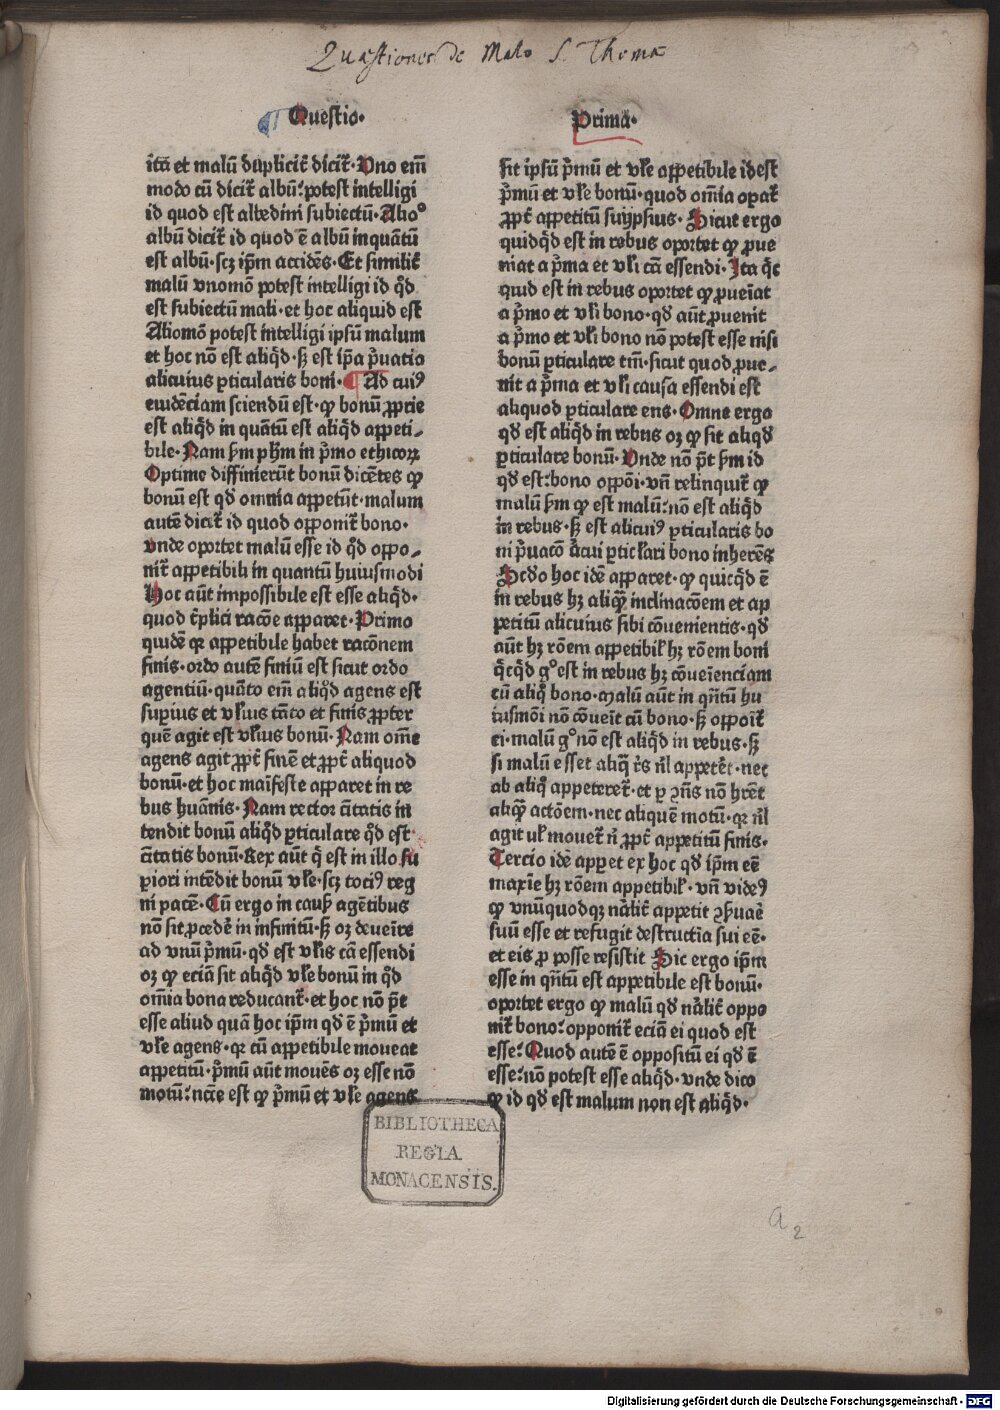 Quæstiones de Malo S. Thomæ
Questio.
itā et malū duplicit̄ dicit̄. Uno em̄
modo cū dicit̄ albū: potest intelligi
id quod est albedini subiectū. Alioº
albū dicit̄ id quod ē albū inquātū
est albū. scꝫ ip̄m accidēs. Et similit̄
malū vnomō potest intelligi id qd̄
est subiectū mali. et hoc aliquid est
Aliomō potest intelligi ipsū malum
et hoc nō est aliqd̄. sꝫ est ip̄a p̄uatio
alicuius ꝑticularis boni. ¶ Ad cuiꝰ
euidēciam sciendū est. ꝙ bonū ꝓprie
est aliqd̄ in quātū est aliqd̄ appeti-
bile. Nam s̄m ph̄m in p̄mo ethicoꝝ
Optime diffinierūt bonū dicētes ꝙ
bonū est qd̄ omnia appetūt. malum
autē dicit̄ id quod opponit̄ bono.
vnde oportet malū esse id qd̄ oppo-
nit̄ appetibili in quantū huiusmodi
Hoc aūt impossibile est esse aliqd̄.
quod t̄plici racōe apparet. Primo
quidē qꝛ appetibile habet racōnem
finis. ordo autē finiū est sicut ordo
agentiū. quāto em̄ aliqd̄ agens est
suꝑius et vl̄ius tāto et finis ꝓpter
quē agit est vl̄ius bonū. Nam om̄e
agens agit ꝓpt̄ finē et ꝓpt̄ aliquod
bonū. et hoc maīfeste apparet in re
bus huānis. Nam rector ciītatis in
tendit bonū aliqd̄ ꝑticulare qd̄ est
ciītatis bonū. Rex aūt q̄ est in illo su
ꝑiori intēdit bonū vl̄e. scꝫ tociꝰ reg
ni pacē. Cū ergo in caus̄ agētibus
nō sit ꝓcedē in infinitū. sꝫ oꝫ deueīre
ad vnū p̄mū. qd̄ est vl̄is cā essendi
oꝫ ꝙ eciā sit aliqd̄ vl̄e bonū in qd̄
om̄ia bona reducant̄. et hoc nō p̄t
esse aliud quā hoc ip̄m qd̄ ē p̄mū et
vl̄e agens. qꝛ cū appetibile moueat
appetitū. p̄mū aūt mouēs oꝫ esse nō
motū: nc̄ce est ꝙ p̄mū et vl̄e agens
Prima.
sit ipsū p̄mū et vl̄e appetibile idest
p̄mū et vl̄e bonū. quod om̄ia opat̄
ꝓpt̄ appetitū suijpsius. Sicut ergo
quidqd̄ est in rebus oportet ꝙ ꝓue
niat a p̄ma et vl̄i cā essendi. Ita q̄c
quid est in rebus oportet ꝙ ꝓueīat
a p̄mo et vl̄i bono. qd̄ aūt ꝓuenit
a p̄mo et vl̄i bono nō potest esse nisi
bonū ꝑticulare tm̄. sicut quod ꝓue-
nit a p̄ma et vl̄i causa essendi est
aliquod ꝑticulare ens. Omne ergo
qd̄ est aliqd̄ in rebus oꝫ ꝙ sit aliqd̄
ꝑticulare bonū. Unde nō p̄t s̄m id
qd̄ est: bono oppōi. vn̄ relinquit̄ ꝙ
malū s̄m ꝙ est malū: nō est aliqd̄
in rebus. sꝫ est alicuiꝰ ꝑticularis bo
ni p̄uacō ācui ꝑticl̄ari bono inherēs
Scd̄o hoc idē apparet. ꝙ quicqd̄ ē
in rebus hꝫ aliqꝫ inclinacōem et ap
petitū alicuius sibi cōuenientis. qd̄
aūt hꝫ rōem appetibil̄ hꝫ rōem boni
q̄cqd̄ gº est in rebus hꝫ cōueīenciam
cū aliq̊ bono. Malū aūt in qn̄tū hu
iusmōi nō cōueīt cū bono. sꝫ oppoīt̄
ei. malū gº nō est aliqd̄ in rebus. sꝫ
si malū esset aliq̄ r̄s nl̄ appetēt. nec
ab aliq̊ appeteret̄. et ꝑ ꝯn̄s nō hrēt
aliqꝫ actōem. nec aliquē motū. qꝛ nl̄
agit ul̄ mouet̄ n̄ ꝓpt̄ appetitū finis.
Tercio idē appet ex hoc qd̄ ip̄m eē
maxīe hꝫ rōem appetibil̄. vn̄ videꝰ
ꝙ vnūquodqꝫ nālit̄ appetit ꝯs̄uaē
suū esse et refugit destructīa sui eē.
et eis ꝓ posse resistit Sic ergo ip̄m
esse in qn̄tū est appetibile est bonū.
oportet ergo ꝙ malū qd̄ nālit̄ oppo
nit̄ bono: opponit̄ eciā ei quod est
esse: Quod autē ē oppositū ei qd̄ ē
esse: nō potest esse aliqd̄. vnde dico
ꝙ id qd̄ est malum non est aliqd̄.
BIBLIOTHECA
REGIA
MONACENSIS.
a 2
Digitalisierung gefördert durch die Deutsche Forschungsgemeinschaft - DFG